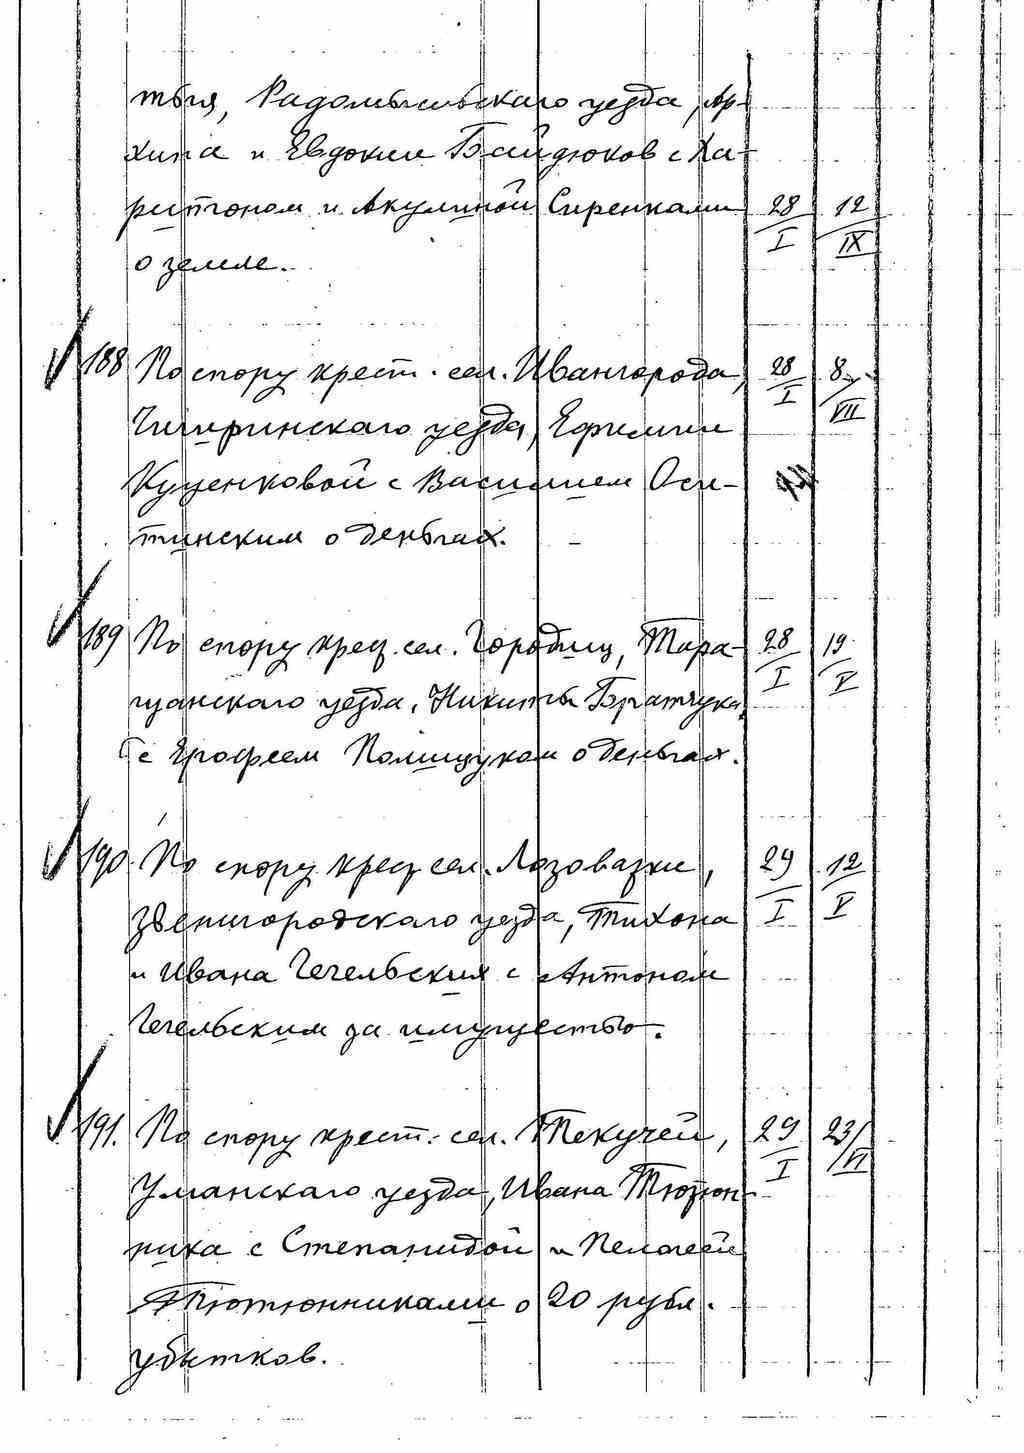 тья, Радомысльскаго уезда, Ар-
хипа и Евдоким Байдюков с Ха-
ритоном и Акулиной Сиренками 28/I 12/IX
о земле.
188 По спору крест. сел. Ивангорода, 28/I 8/VII
Чигиринскаго уезда, Ефимии
Куценковой с Василием Оси-
тинским о деньгах.
189 По спору крес. сел. Городищ, Тара- 28/I 19/V
щанскаго уезда, Никиты Братчука,
с Ерофеем Полищуком о деньгах.
190 По спору крес. сел. Лозоватки, 29/I 12/V
Звенигородскаго уезда, Тихона
и Ивана Чечельских с Антоном
Чечельским за имущество.
191. По спору крест. сел. Текучей, 29/I 23/VI
Уманскаго уезда, Ивана Тютюн-
ника с Степанидой и Пелагеей
Тютюнниками о 20 рубл.
убытков.